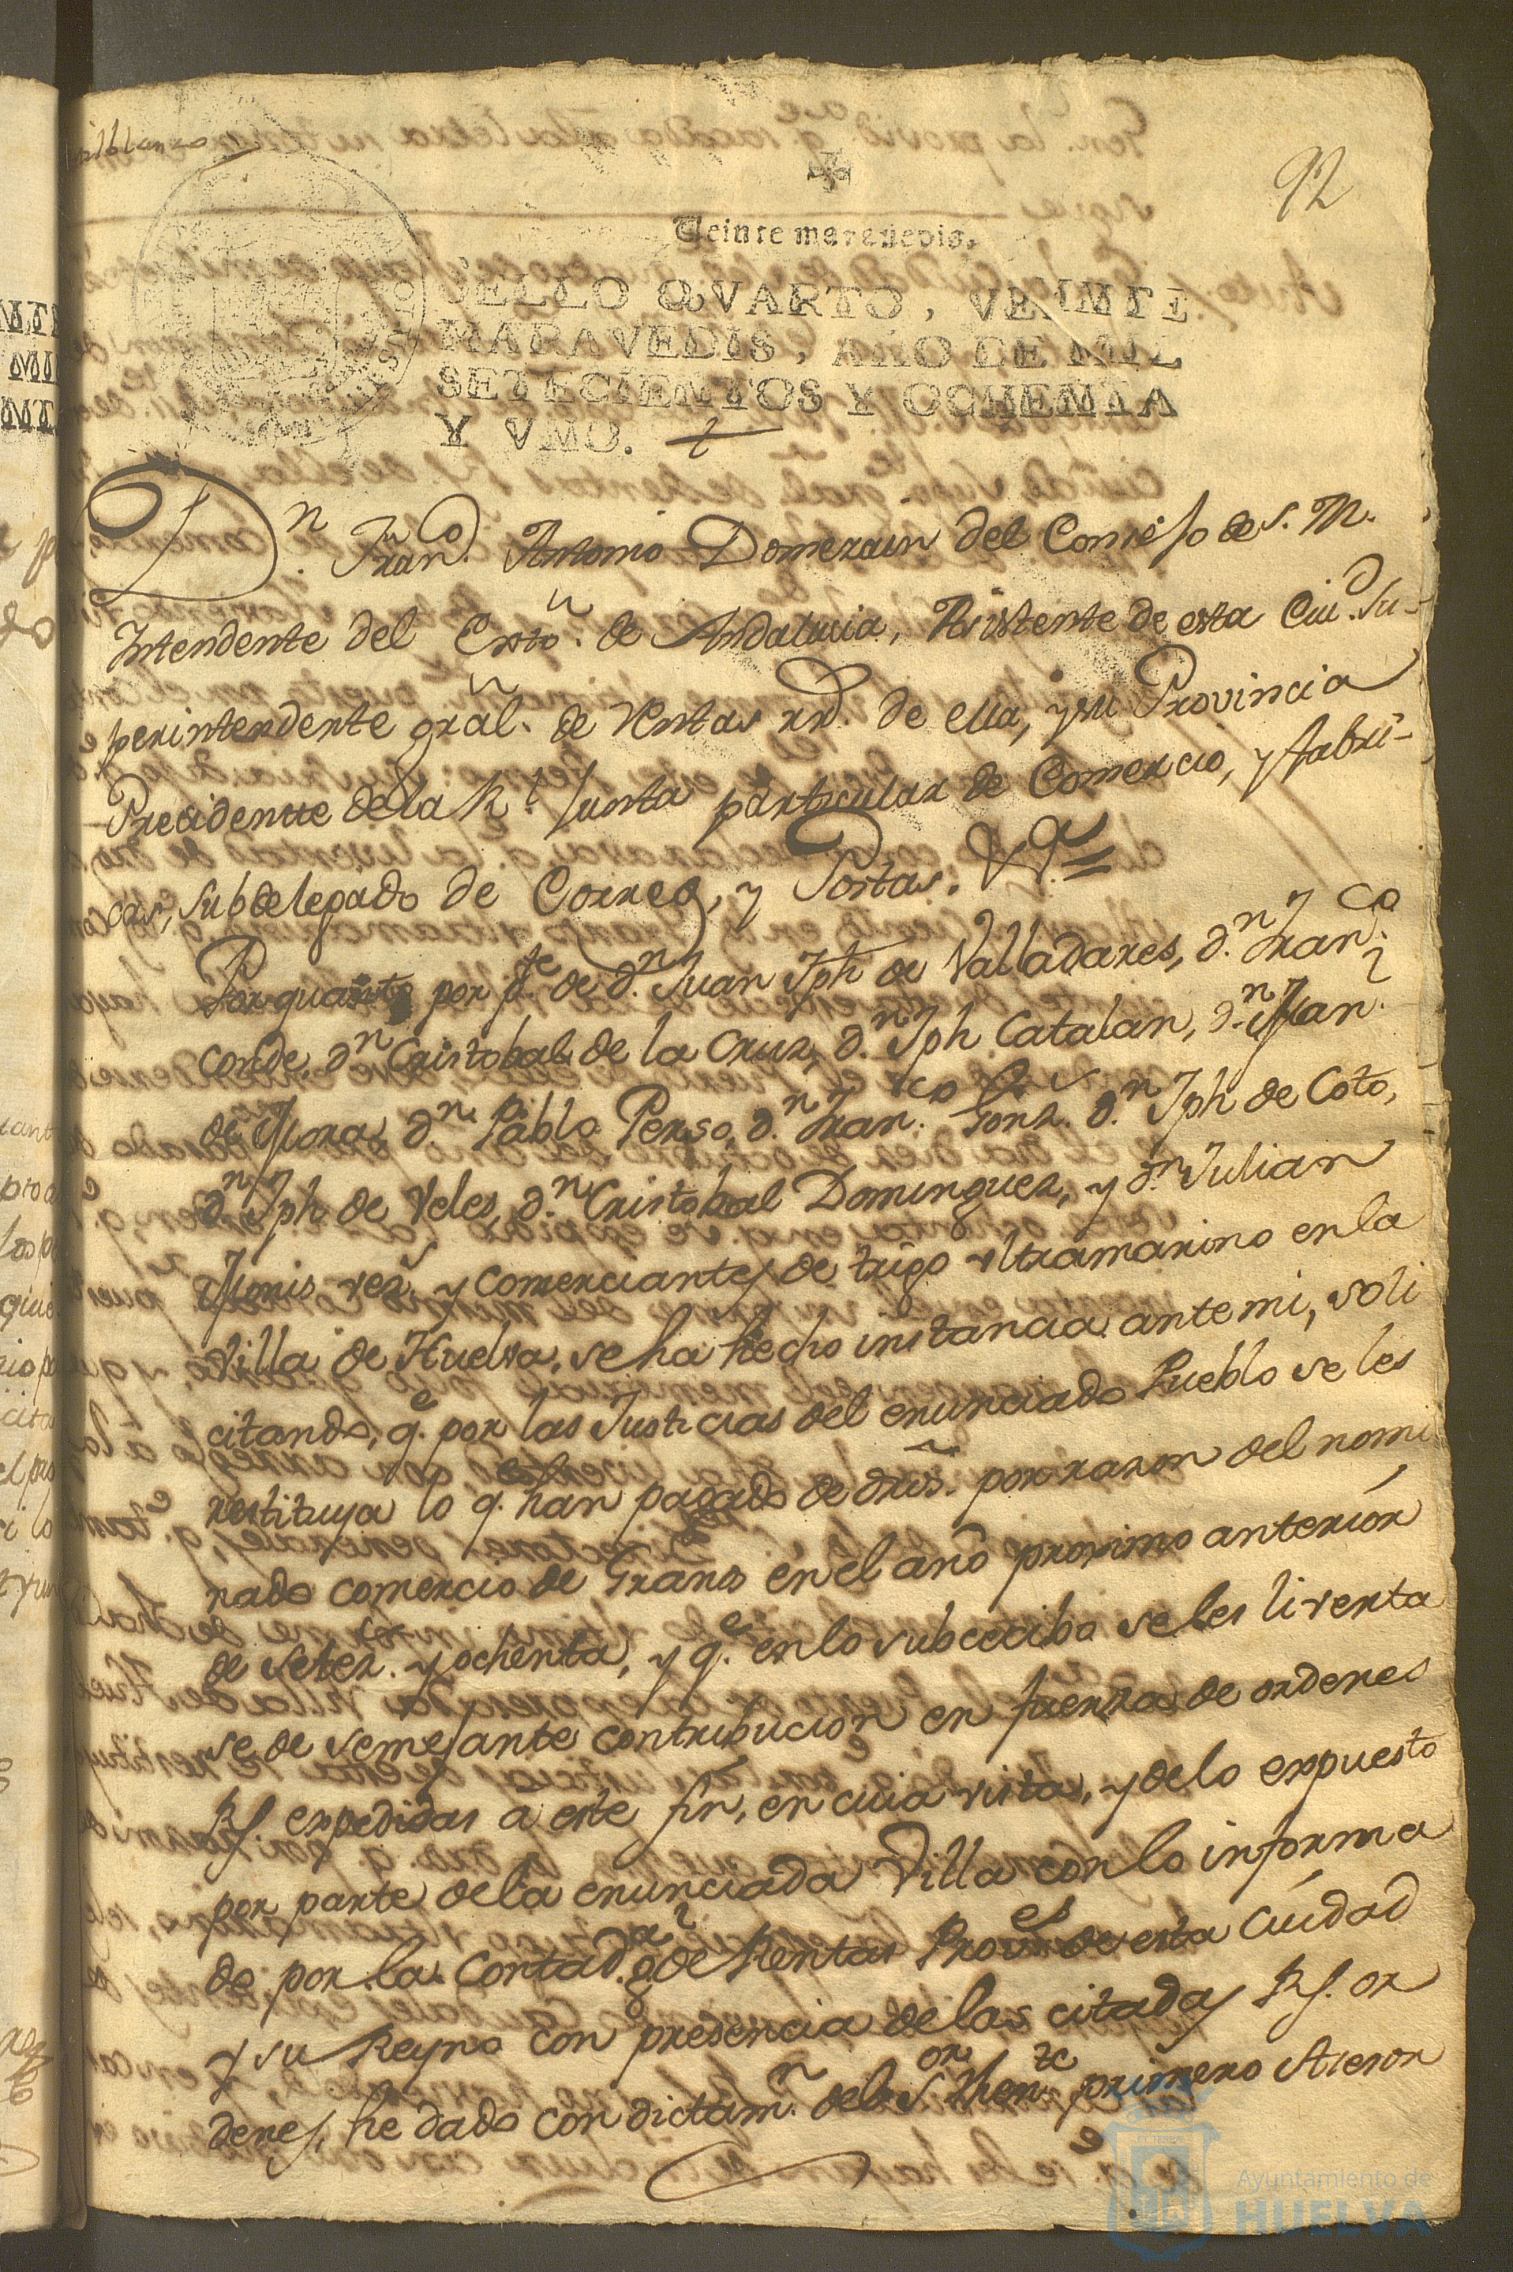 92
Veinte maravedis.
SELLO QVARTO, VEINTE
MARAVEDIS, AÑO DE MIL
SETECIENTOS Y OCHENTA
Y VNO.
Dn. Franco. Antonio Domezain del Consejo de S. M.
Intendente del Exto. de Andalucia, Asistente de esta Ciud. Su-
perintendente gral. de Rentas rrs. de ella, y su Provincia
Precidente dela Rl. Junta particular de Comercio, y fabri-
cas, Subdelegado de Correos, y Postas. &a. =
Por quanto por pte. de dn. Juan Jph de Valladares, dn. Franco.
Conde, dn. Cristobal de la Cruz, dn. Jph Catalan, dn. Man.
de Mora, dn. Pablo Perso, dn. Franco. Gonz. dn. Jph de Coto,
dn. Jph de Veles, dn. Cristobal Dominguez, y dn. Julian
Monis vezs. y comerciantes de trigo ultramarino en la
Villa de Huelva, se ha hecho instancia ante mi, soli
citando, qe. por las Justicias del enunciado Pueblo se les
restituya lo q. han pagado de dros. por razon del nomi
nado comercio de Granos en el año proximo anterior
de setez. y ochenta, y qe. en lo subcecibo se les liventa
se de semejante contribucion en fuerzas de ordenes
Rs. expedidas a este fin, en cuia vista, y de lo expuesto
por parte de la enunciada Villa con lo informa
do por la Contada. gl. de Rentas Proves. de esta Ciudad
y su Reyno con presencia de las citadas Rs. or
denes, he dado con dictamn. del Sor. Thente. primero Asesor
Ayuntamiento de
HUELVA